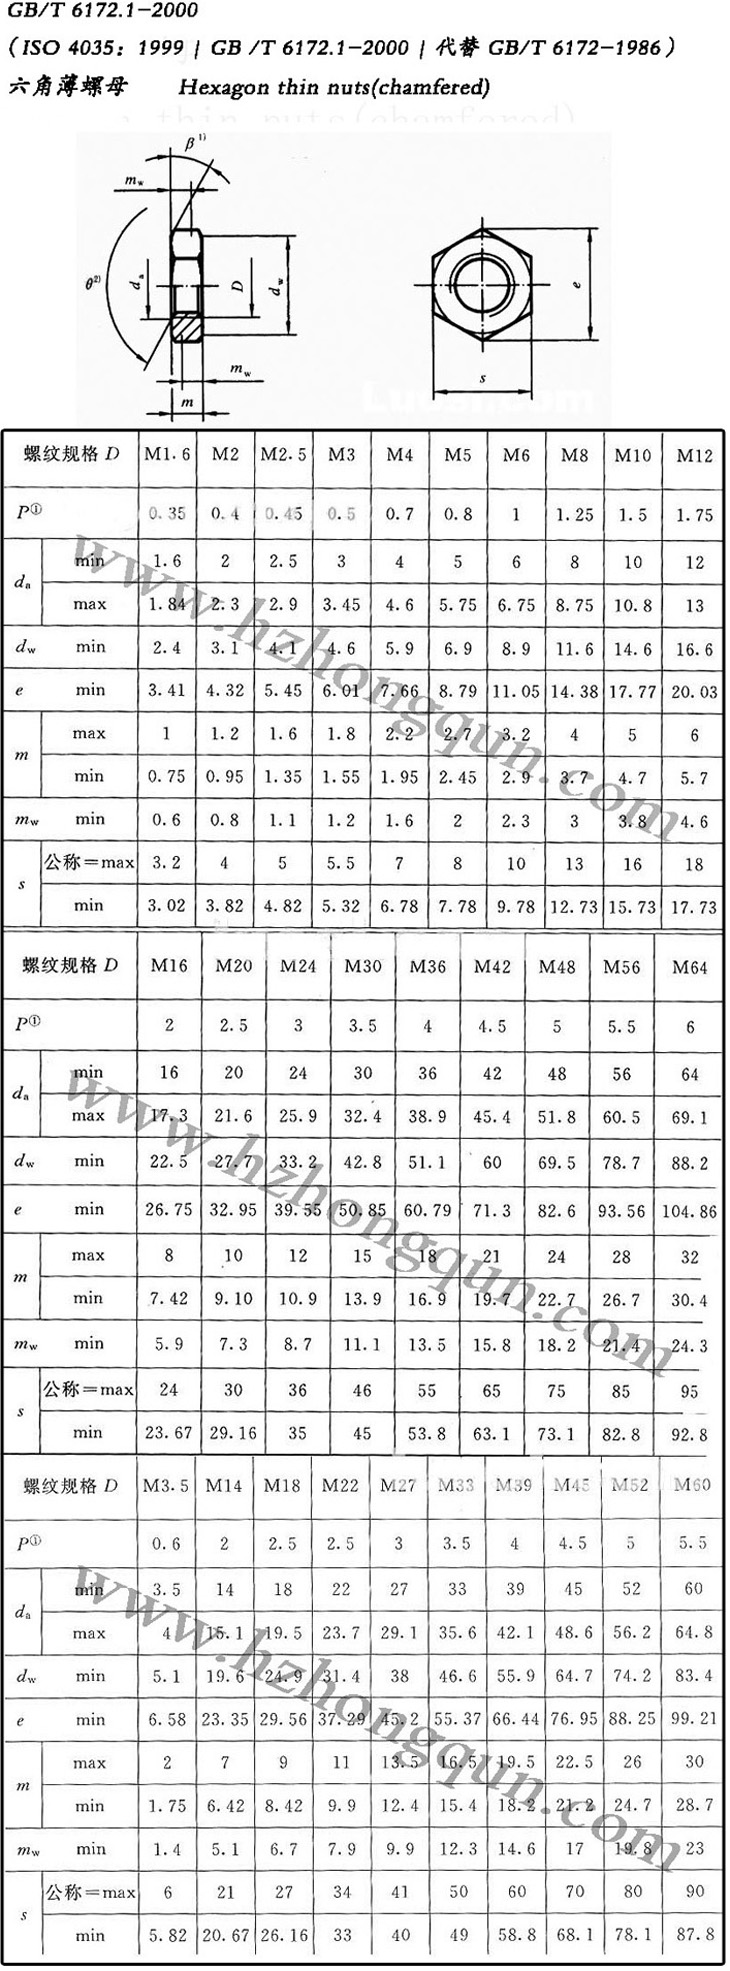 GB/T 6172.1-2000
(ISO 4035: 1999 | GB /T 6172.1-2000 | 代替 GB/T 6172-1986)
六角薄螺母 Hexagon thin nuts(chamfered)
β1)
mw
θ2) da D dw e
mw s
m
螺纹规格 D M1.6 M2 M2.5 M3 M4 M5 M6 M8 M10 M12
P① 0.35 0.4 0.45 0.5 0.7 0.8 1 1.25 1.5 1.75
da min 1.6 2 2.5 3 4 5 6 8 10 12
max 1.84 2.3 2.9 3.45 4.6 5.75 6.75 8.75 10.8 13
dw min 2.4 3.1 4.1 4.6 5.9 6.9 8.9 11.6 14.6 16.6
e min 3.41 4.32 5.45 6.01 7.66 8.79 11.05 14.38 17.77 20.03
m max 1 1.2 1.6 1.8 2.2 2.7 3.2 4 5 6
min 0.75 0.95 1.35 1.55 1.95 2.45 2.9 3.7 4.7 5.7
mw min 0.6 0.8 1.1 1.2 1.6 2 2.3 3 3.8 4.6
s 公称=max 3.2 4 5 5.5 7 8 10 13 16 18
min 3.02 3.82 4.82 5.32 6.78 7.78 9.78 12.73 15.73 17.73
www.hzhongqun.com
螺纹规格 D M16 M20 M24 M30 M36 M42 M48 M56 M64
P① 2 2.5 3 3.5 4 4.5 5 5.5 6
da min 16 20 24 30 36 42 48 56 64
max 17.3 21.6 25.9 32.4 38.9 45.4 51.8 60.5 69.1
dw min 22.5 27.7 33.2 42.8 51.1 60 69.5 78.7 88.2
e min 26.75 32.95 39.55 50.85 60.79 71.3 82.6 93.56 104.86
m max 8 10 12 15 18 21 24 28 32
min 7.42 9.10 10.9 13.9 16.9 19.7 22.7 26.7 30.4
mw min 5.9 7.3 8.7 11.1 13.5 15.8 18.2 21.4 24.3
s 公称=max 24 30 36 46 55 65 75 85 95
min 23.67 29.16 35 45 53.8 63.1 73.1 82.8 92.8
www.hzhongqun.com
螺纹规格 D M3.5 M14 M18 M22 M27 M33 M39 M45 M52 M60
P① 0.6 2 2.5 2.5 3 3.5 4 4.5 5 5.5
da min 3.5 14 18 22 27 33 39 45 52 60
max 4 15.1 19.5 23.7 29.1 35.6 42.1 48.6 56.2 64.8
dw min 5.1 19.6 24.9 31.4 38 46.6 55.9 64.7 74.2 83.4
e min 6.58 23.35 29.56 37.29 45.2 55.37 66.44 76.95 88.25 99.21
m max 2 7 9 11 13.5 16.5 19.5 22.5 26 30
min 1.75 6.42 8.42 9.9 12.4 15.4 18.2 21.2 24.7 28.7
mw min 1.4 5.1 6.7 7.9 9.9 12.3 14.6 17 19.8 23
s 公称=max 6 21 27 34 41 50 60 70 80 90
min 5.82 20.67 26.16 33 40 49 58.8 68.1 78.1 87.8
www.hzhongqun.com